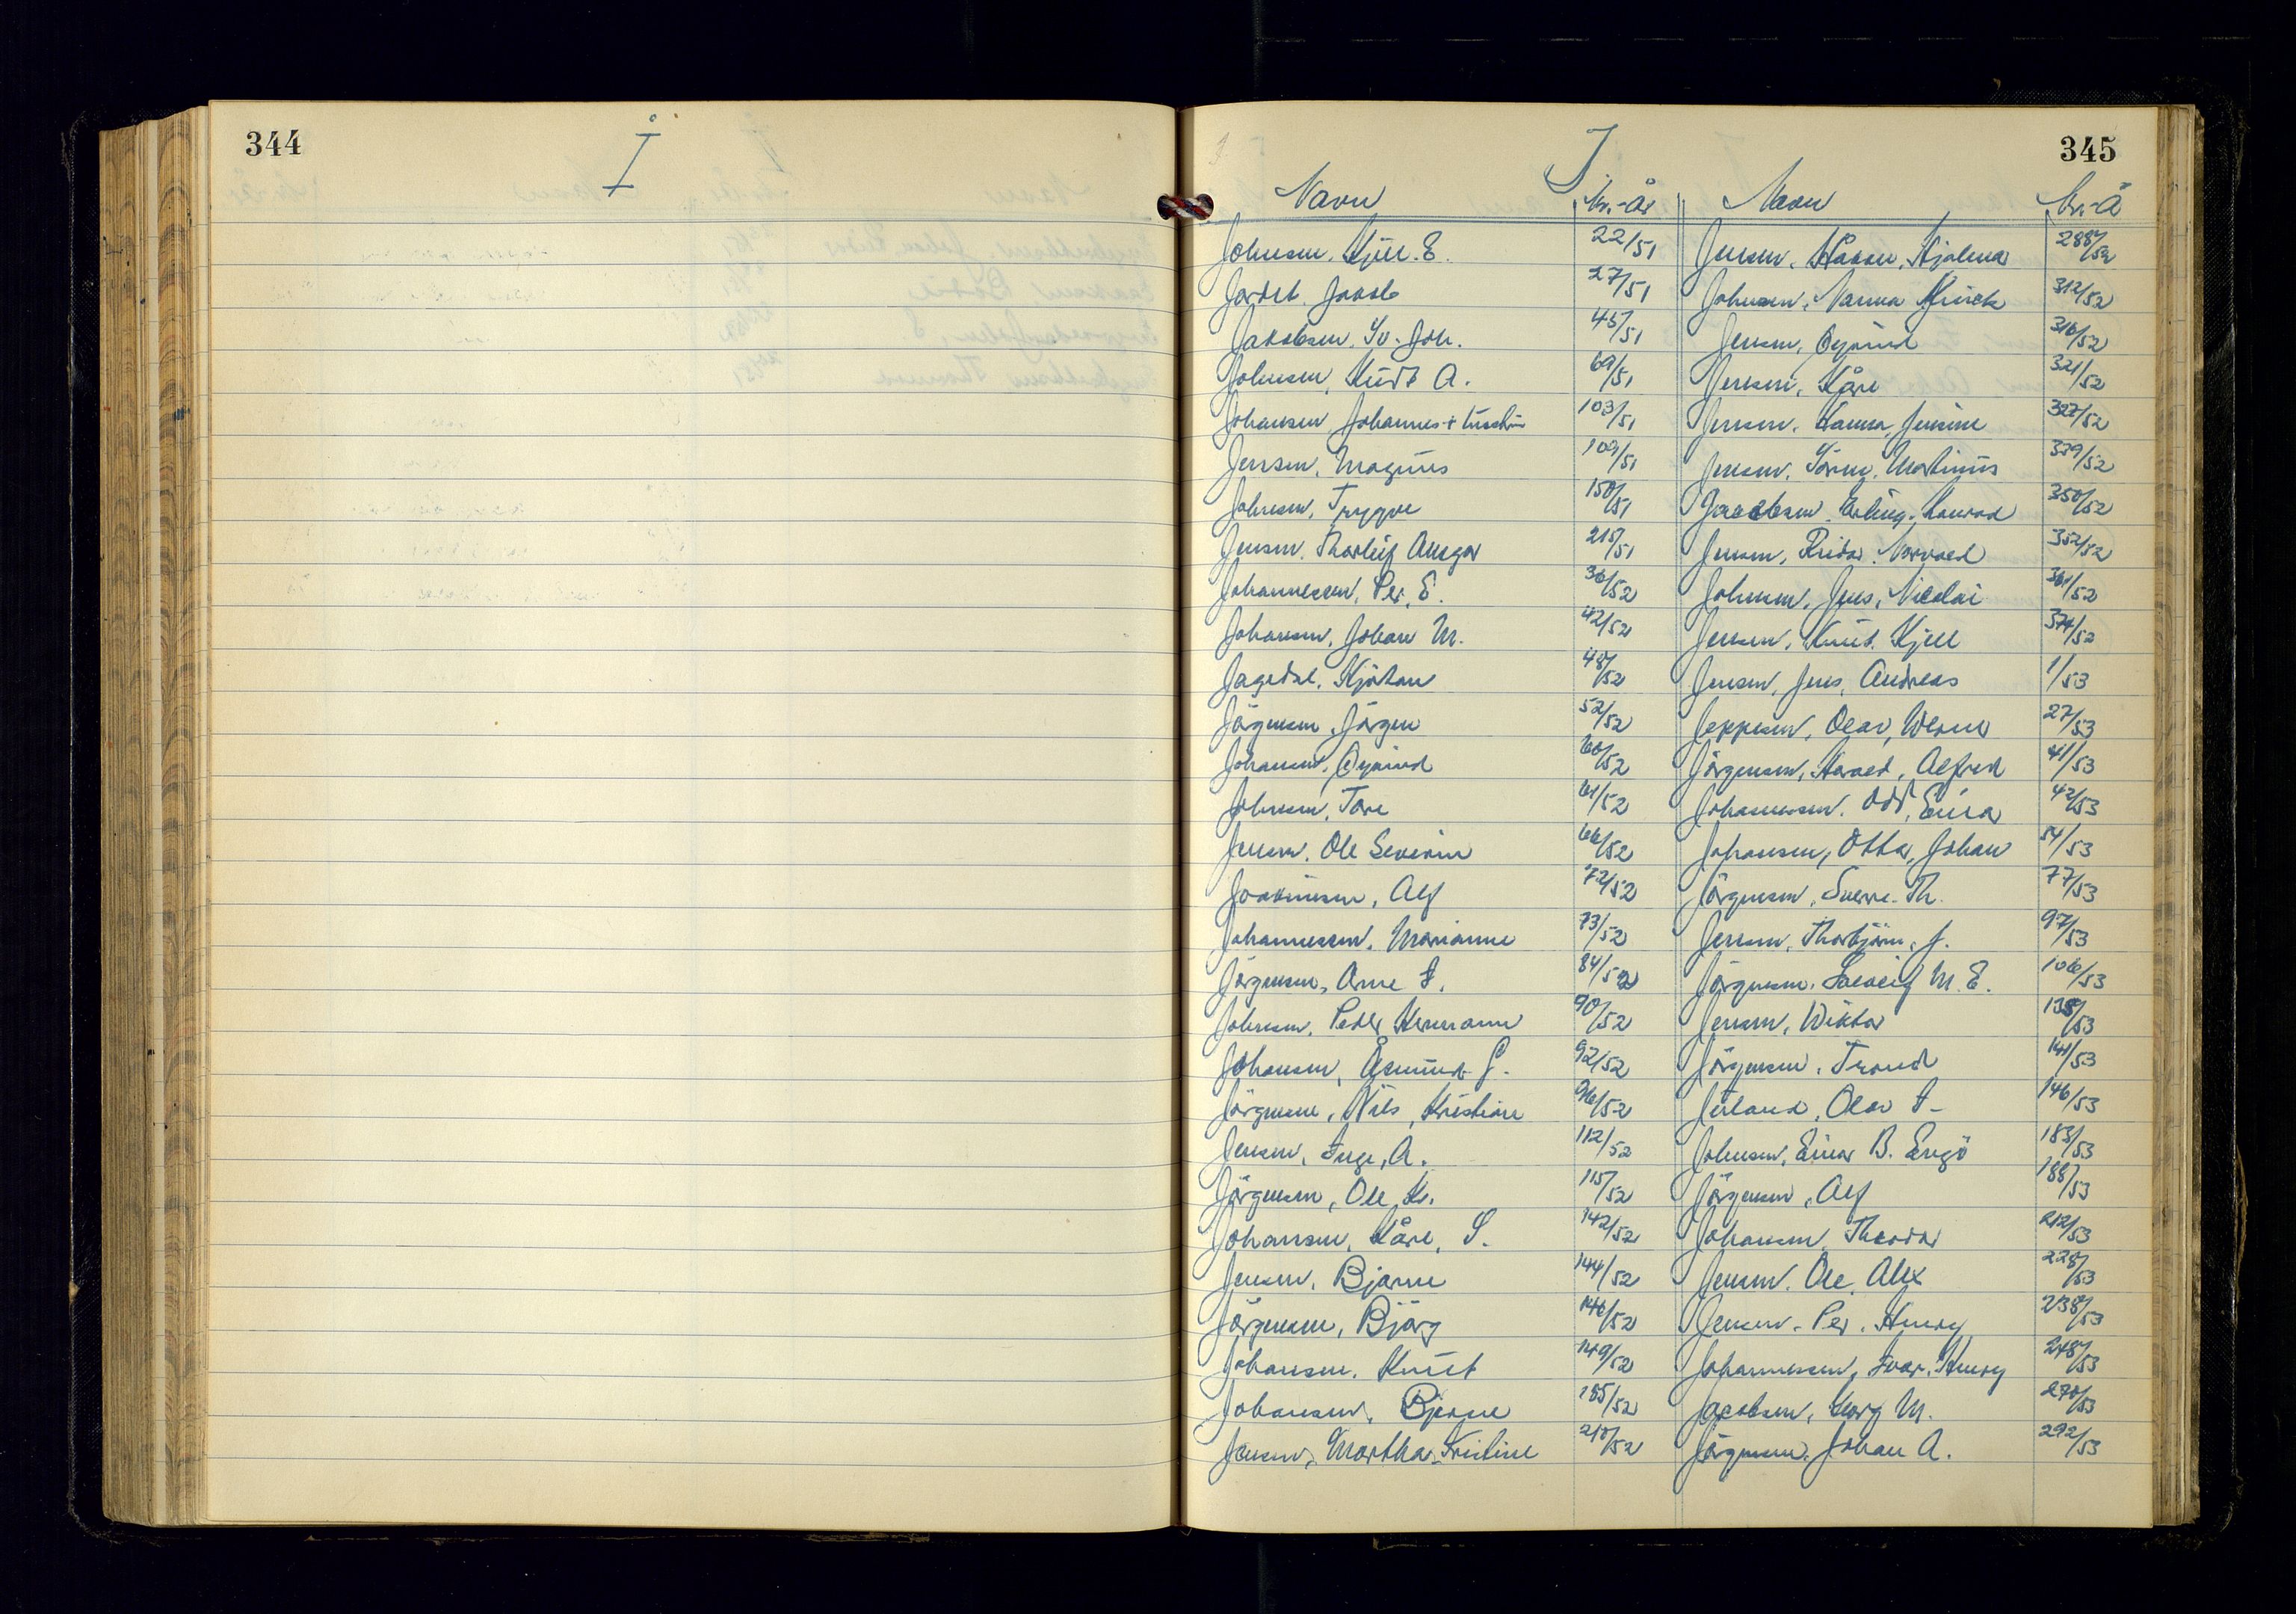 344
I
345
J
Navn Nr.-År
Johnsen, Kjell. E. 22/51
Jordet. Jacob 27/51
Jakobsen, Joh. 45/51
Johnsen, Knut A. 69/51
Johansen, Johannes + 103/51
Jenssen, Magnus 109/51
Johnsen, Trygve 150/51
Jensen. Thorleif Ansgar 215/51
Johannessen, Per, E. 36/52
Johansen, Johan M. 42/52
Jagedal, Kjøtan 48/52
Jörgensen, Jörgen 52/52
Johansen, Øyvind 60/52
Johnsen, Tore 61/52
Jensen, Ole Severin 66/52
Joakimsen, Alf 72/52
Johannessen, Marianne 73/52
Jörgensen, Arne I. 84/52
Johnsen, Peder Hermann 90/52
Johansen, Åsmund J. 92/52
Jörgensen, Nils, Kristian 96/52
Jensen, Inge, A. 112/52
Jörgensen, Ole, Kr. 115/52
Johansen, Kåre, S. 142/52
Jensen, Bjarne 144/52
Jörgensen, Björg 146/52
Johansen, Knut 149/52
Johansen, Bjarne 185/52
Jensen, Martha, Kristine 218/52
Navn Nr.-Å
Jensen, Håkon, Hjalmar 288/52
Johnsen, Nanna Kinck 312/52
Jensen, Øyvind 316/52
Jensen, Kåre 321/52
Jensen, Hanna, Jensine 327/52
Jensen, Martinus 339/52
Jacobsen, Erling. Konrad 350/52
Jensen, Reidar. Norvald 352/52
Johnsen, Jens, Nicolai 361/52
Jensen, Knut. Kjell 374/52
Jensen, Jens, Andreas 1/53
Jeppesen, Olav, Werner 27/53
Jörgensen, Harald, Alfred 41/53
Johannessen. Odd, Einar 42/53
Johansen, Ottar, Johan 54/53
Jörgensen, Sverre. Th. 77/53
Jensen, Thorbjörn, J. 97/53
Jörgensen, Solveig M. E. 106/53
Jensen, Wiktor 138/53
Jörgensen, Trond 141/53
Jutland, Olav I- 146/53
Johnsen, Einar B. Engö 183/53
Jörgensen, Alf 188/53
Johansen, Theodor 212/53
Jensen, Ole, Alex 228/53
Jensen, Per, Henry 238/53
Johannessen, Ivar, Henry 248/53
Jacobsen, Georg M. 270/53
Jörgensen, Johan A. 292/53